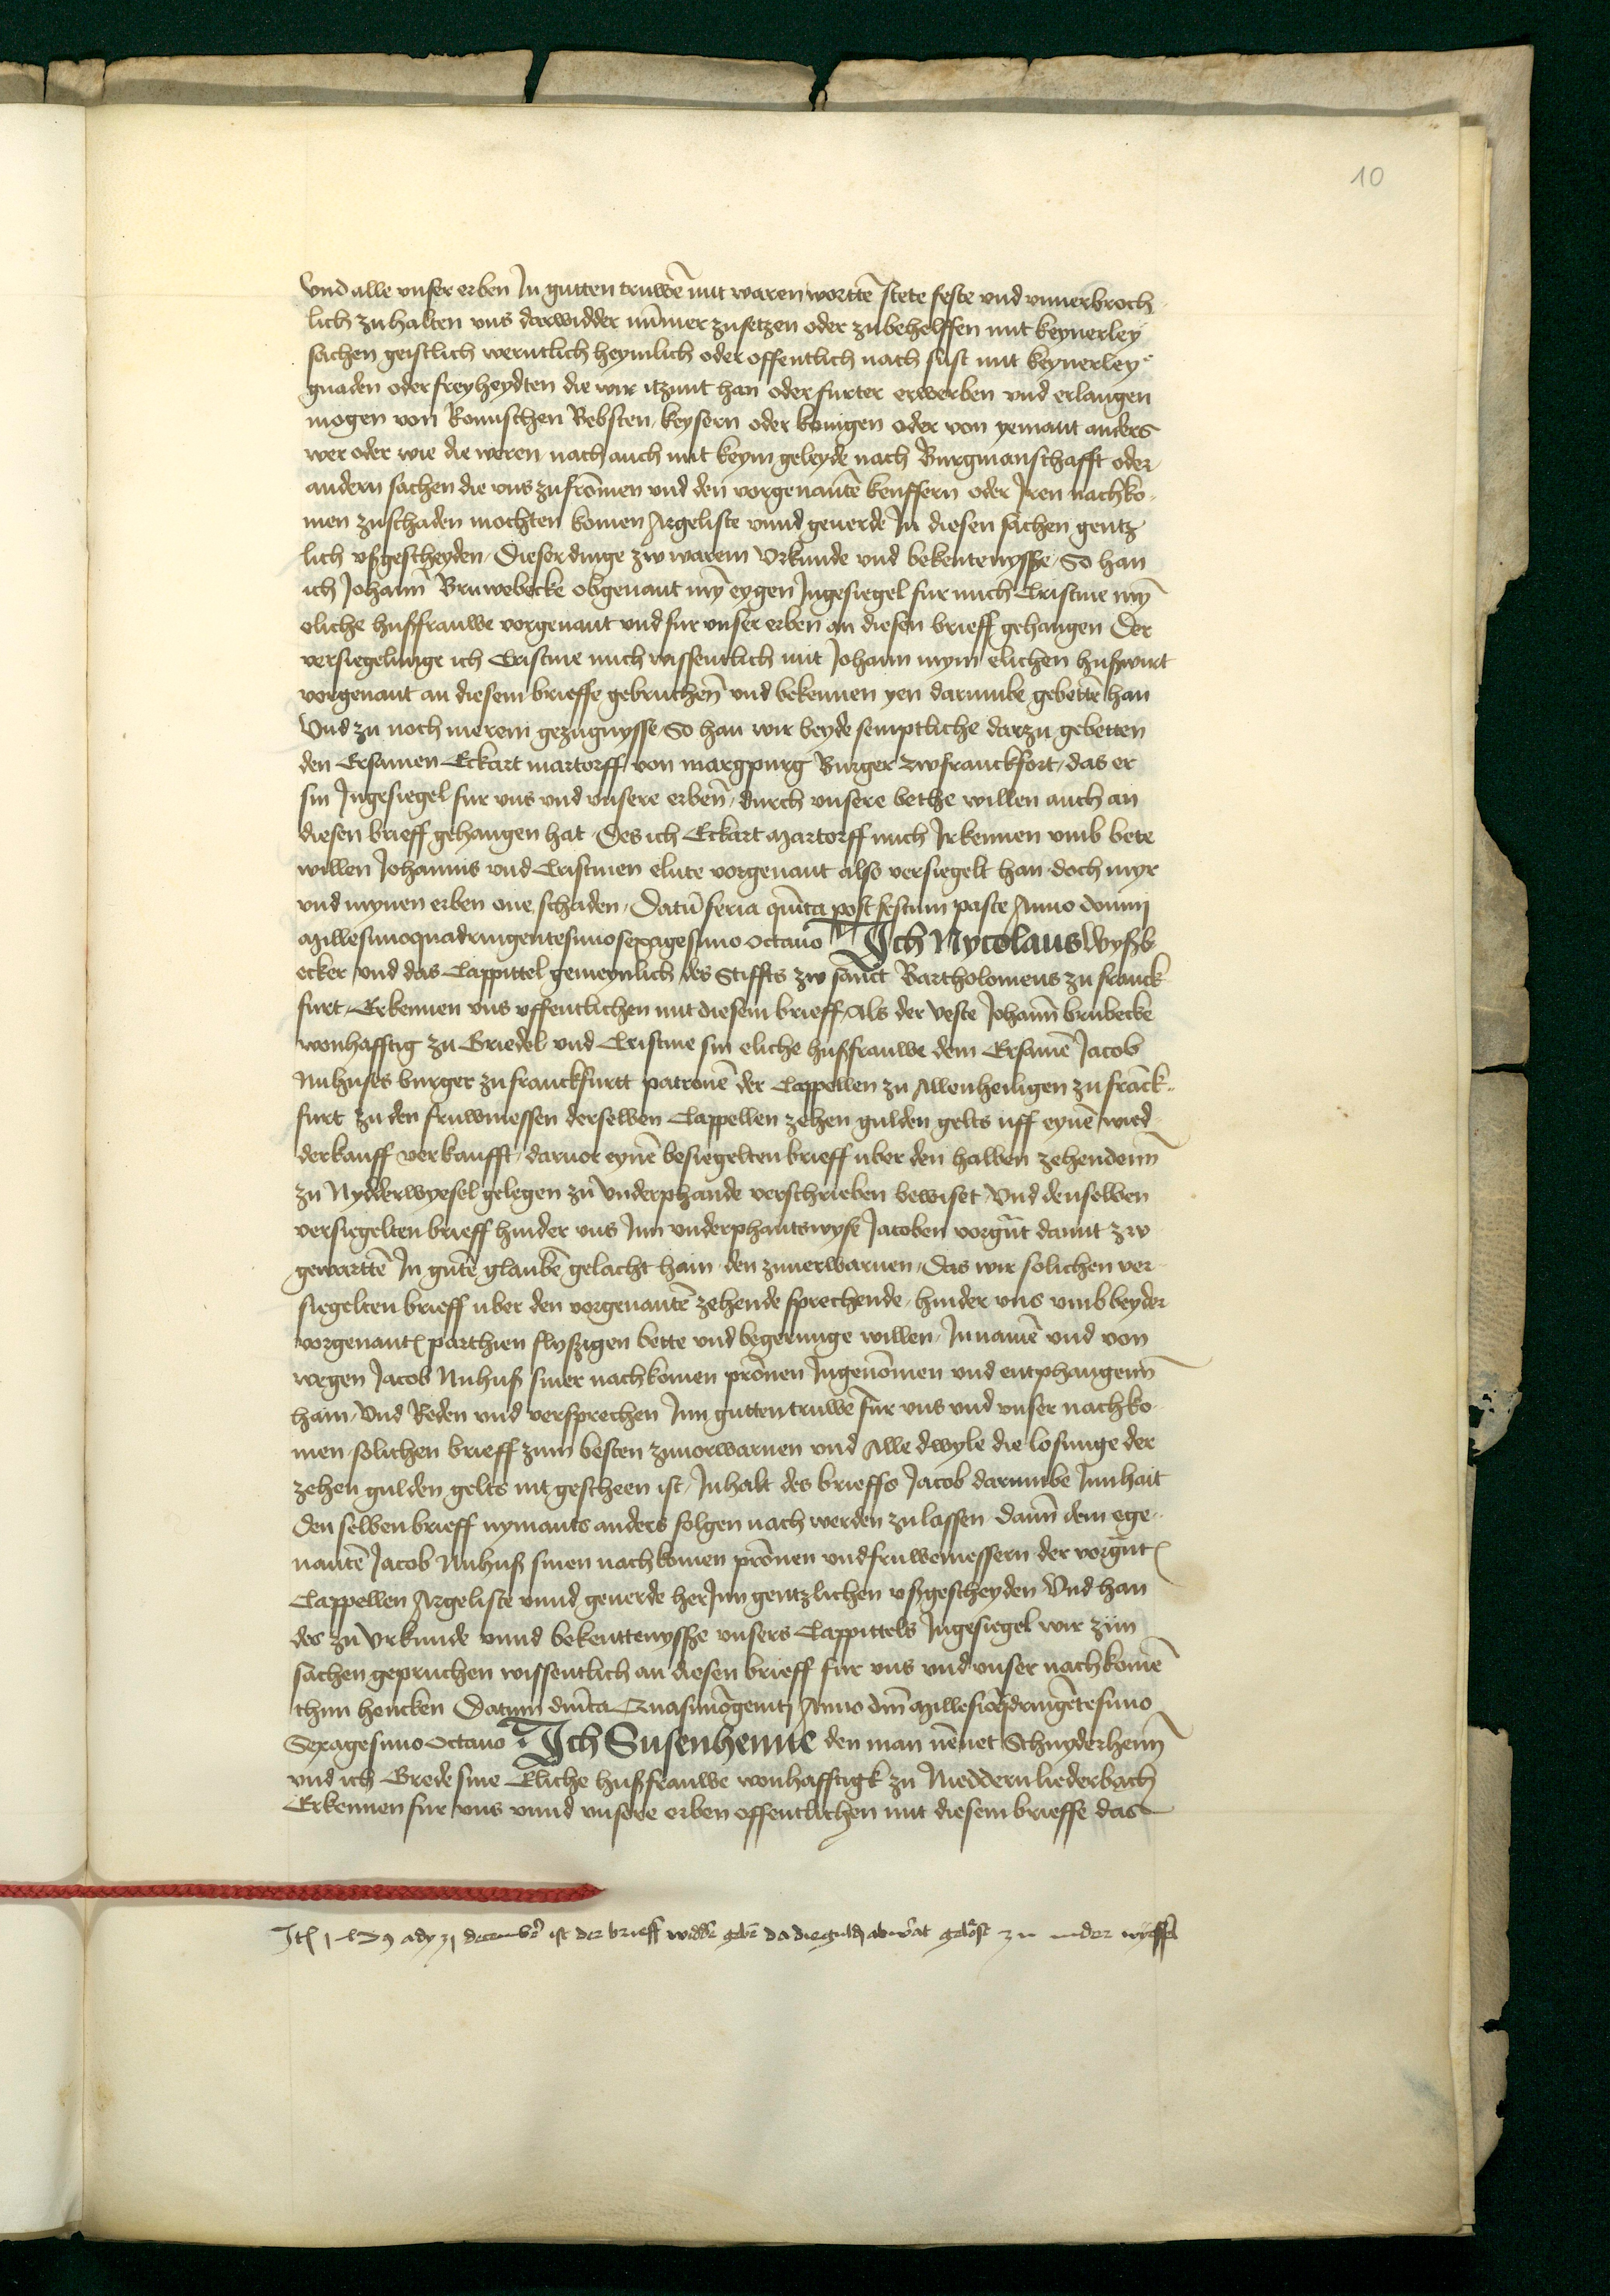 10
Vnd alle vnser erben Jn gutten truwē mit waren wortē stete feste vnd vnuerbroch
lich zu halten vns darwidder nūmer zusetzen oder zubehelffen mit keynerley
sachen geistlich werntlich heymlich oder offentlich nach sust mit keynerley
gnaden oder freyheydten die wir itzunt han oder furter erwerben vnd erlangen
mogen von Romschen Bebsten keysern oder konigen oder von yemant anders
wer oder wie die weren nach auch mit keym geleyde nach Burgmanschafft oder
andern sachen die vns zu frōmen vnd den vorgenantē keuffern oder Jren nachko
men zuschaden mochten komen Argeliste vnnd geuerde Jn diesen sachen gentz
lich vßgescheyden Dieser dinge zw warem Vrkunde vnd bekentenysse So han
ich Johann̄ Bruwebecke obgenant mȳ eygen Jngesiegel fur mich Cristine mȳ
eliche hußfrauwe vorgenant vnd fur vnser erben an diesen brieff gehangen Der
versiegelunge ich Cristine mich wissentlich mit Johann mym elichen hußwurt
vorgenant an diesem brieffe gebruchen̄ vnd bekennen yen darumbe gebettē han
Vnd zu noch merem gezugnysse So han wir beyde semptliche darzu gebetten
den Ersamen Eckart martorff von margpurg Burger zw franckfort das er
sin Jngesiegel fur vns vnd vnsere erben̄ durch vnsere bethe willen auch an
diesen brieff gehangen hat Des ich Eckart Martorff mich Jrkennen vmb bete
willen Johannis vnd Cristinen elute vorgenant also versiegelt han doch myr
vnd mynen erben one schaden Datū feria quīta post festum pasce Anno domini
Millesimoquadringentesimosexagesimo octauo Jch Nycolaus Wyßb
ecker vnd das Cappittel gemeynlich des Stiffts zw sanct Bartholomeus zu franck
furt Erkennen vns offentlichen mit diesem brieff Als der veste Johann̄ brubecke
wonhafftig zu Griedel vnd Cristine sin eliche hußfrauwe dem Ersamē Jacob
Nuhuses burger zu franckfurtt patronē der Cappellen zu Allenheiligen zu franck
furt zu den fruwmessen derselben Cappellen zehen gulden gelts uff eynē wid
derkauff verkaufft daruor eynē besiegelten brieff uber den halben zehendenn̄
zu Nydderwyesel gelegen zu vnderphande verschrieben bewiset Vnd denselben
versiegelten brieff hinder vns Jnn vnderphantswyse Jacoben vorgn̄t damit zw
gewartē Jn gutē glaubē gelacht hain den zuuerwarnen Das wir solichen ver
siegelten brieff uber den vorgenantē zehende sprechende hinder vns vmb beyder
vorgenant parthien flyßigen bette vnd begerunge willen Jn namē vnd von
wegen Jacob Nuhuß siner nachkomen prōnen Jngenōmen vnd entphangenn̄
hain Vnd Reden vnd versprechen Jnn gutten truwē fur vns vnd vnser nachko
men solichen brieff zum besten zuuorwarnen vnd Alle dwyle die losunge der
zehen gulden gelts nit gescheen ist Jnhalt des brieffs Jacob darumbe Jnnhait
den selben brieff nymants anders folgen nach werden zu lassen dann̄ dem ege
nantē Jacob Nuhuß sinen nachkomen prōnen vnd fruwemessern der vorgn̄t
Cappellen Argeliste vnnd geuerde her Jnn gentzlichen vßgescheyden Vnd han
des zu Vrkunde vnnd bekenttenysse vnsers Cappittels Jngesiegel wir zun
sachen gepruchen wissentlich an diesen brieff fur vns vnd vnser nachkomē
thun hencken Datum dnīca Quasimōgeniti Anno dn̄i Millesīoq̄dringētesimo
Sexagesimo octauo Jch Susenhenne den man nēnet Schnyderhenn̄
vnd ich Grede sine Eliche hußfrauwe wonhafftigk zu Nieddern liederbach
Erkennen fur vns vnnd vnsere erben offentlichen mit diesem brieffe das
ady 31 december ist der brieff widder gebē da die guld gelost zu nider wyssel